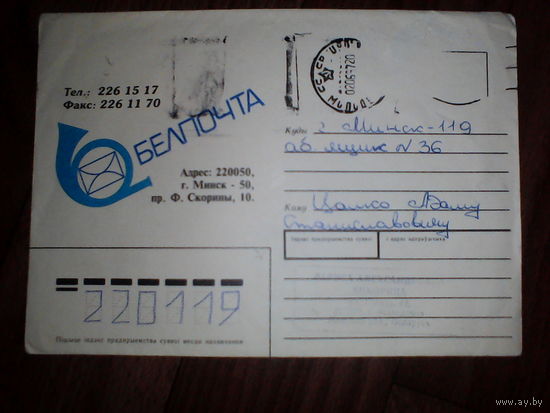 Тел.: 226 15 17
Факс: 226 11 70
БЕЛПОЧТА
Адрес: 220050,
г. Минск - 50,
пр. Ф. Скорины, 10.
Куды г. Минск-119
аб ящик N 36
Каму Цалко Адаму
Станиславовичу
Індэкс прадпрыемства сувязі і адрас адпраўшчыка
220119
Індэкс прадпрыемства сувязі месца назначэння
www.ay.by